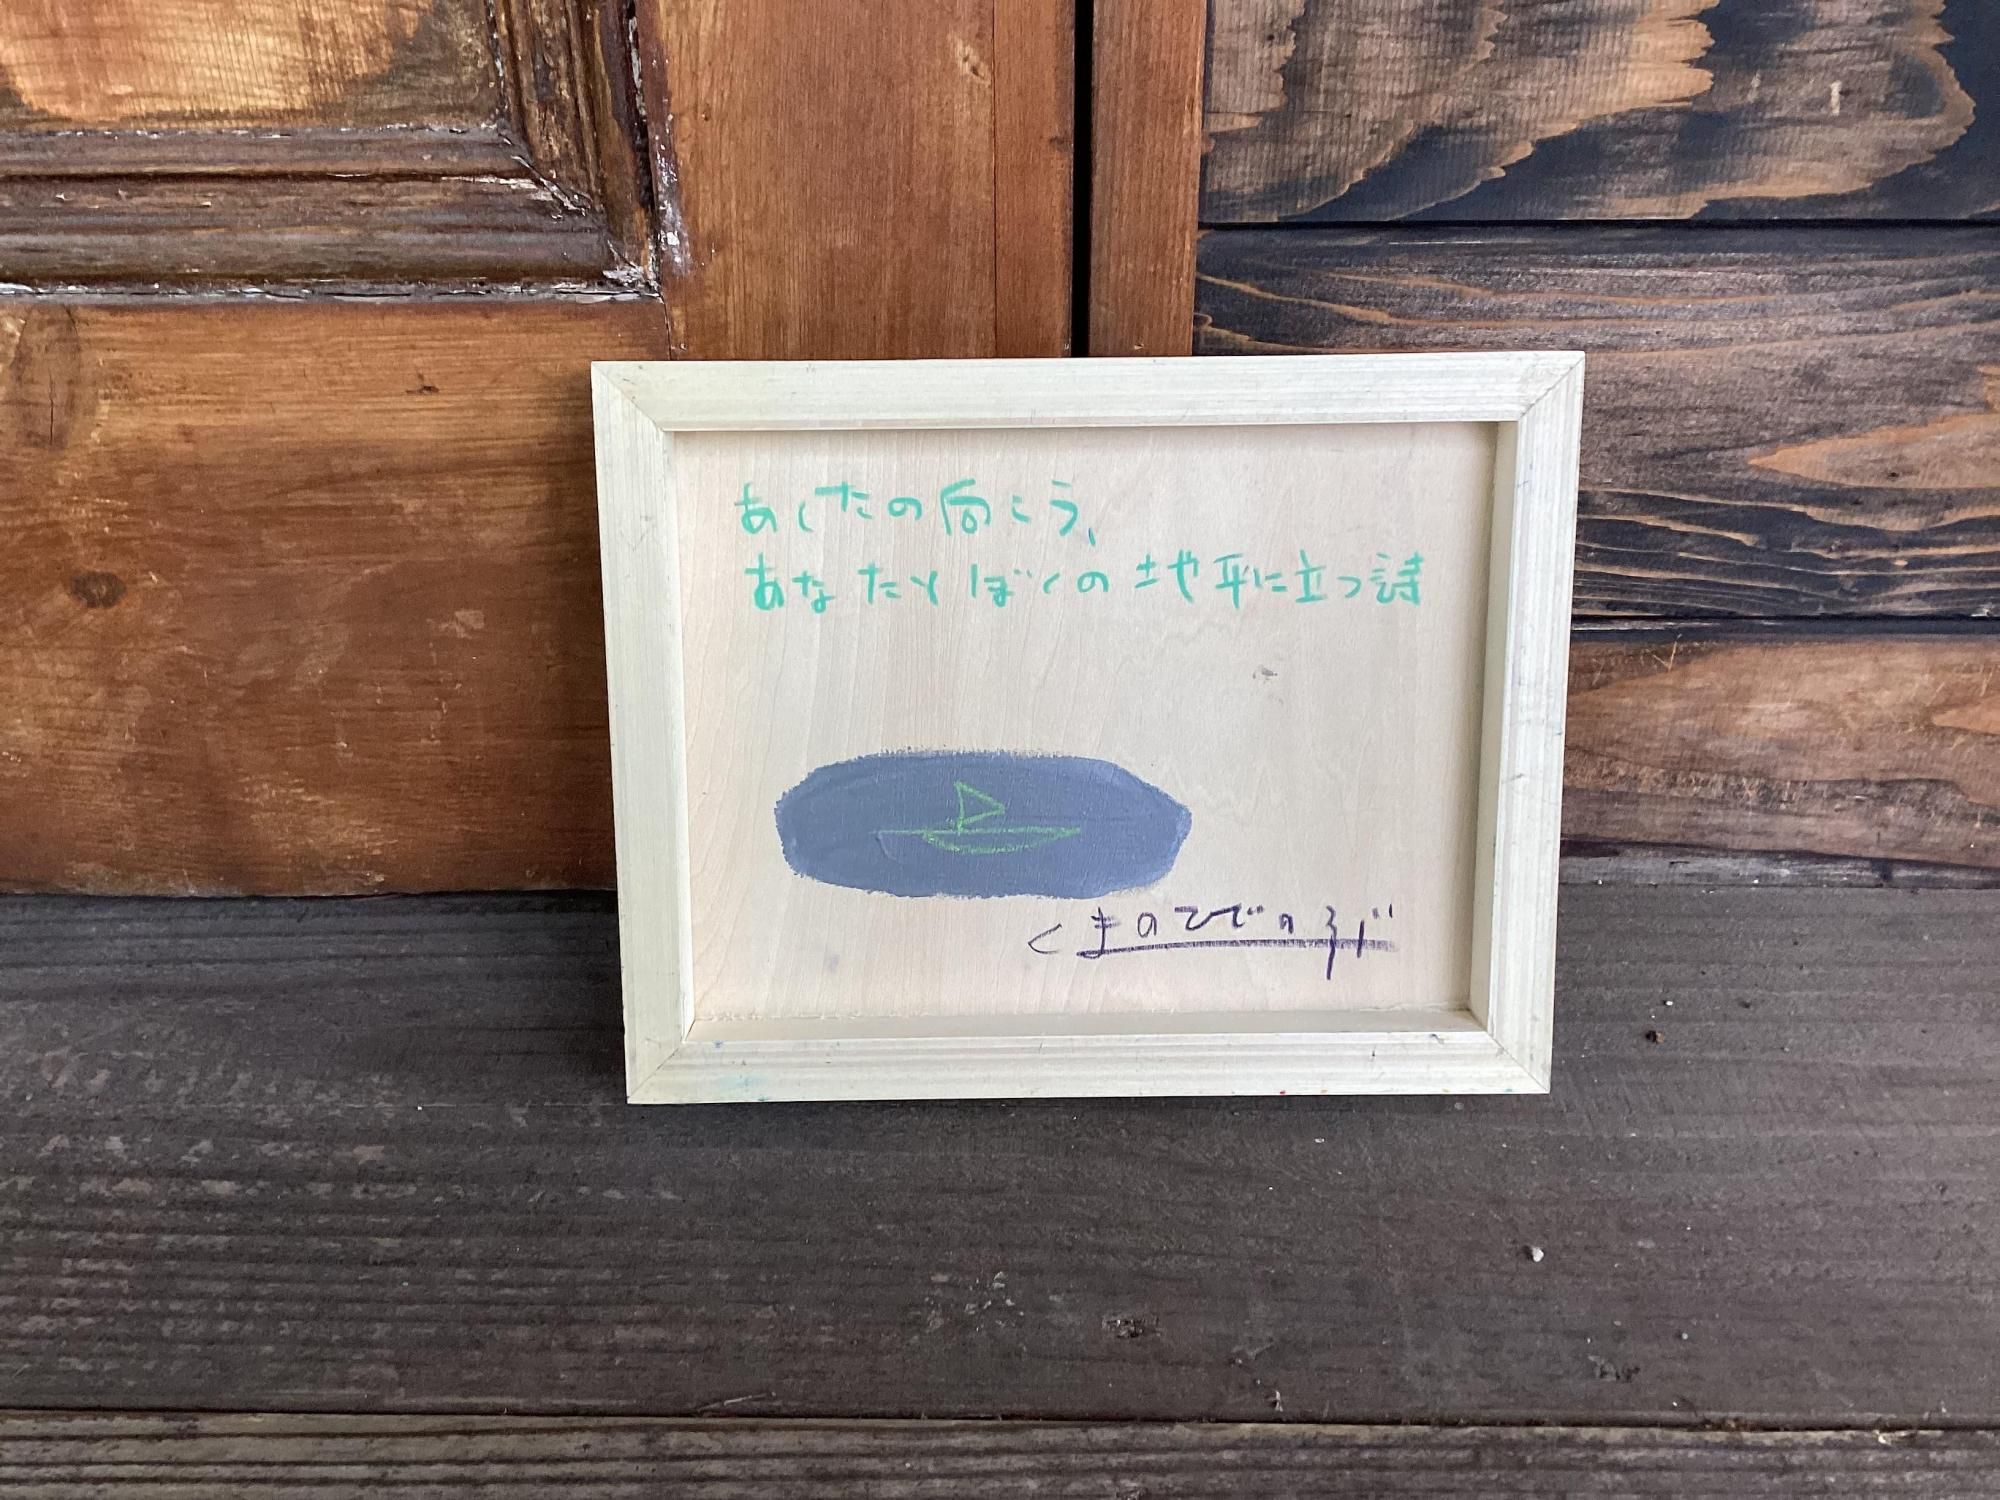 あしたの向こう、
あなたとぼくの地平に立つ詩
くまのひでのぶ